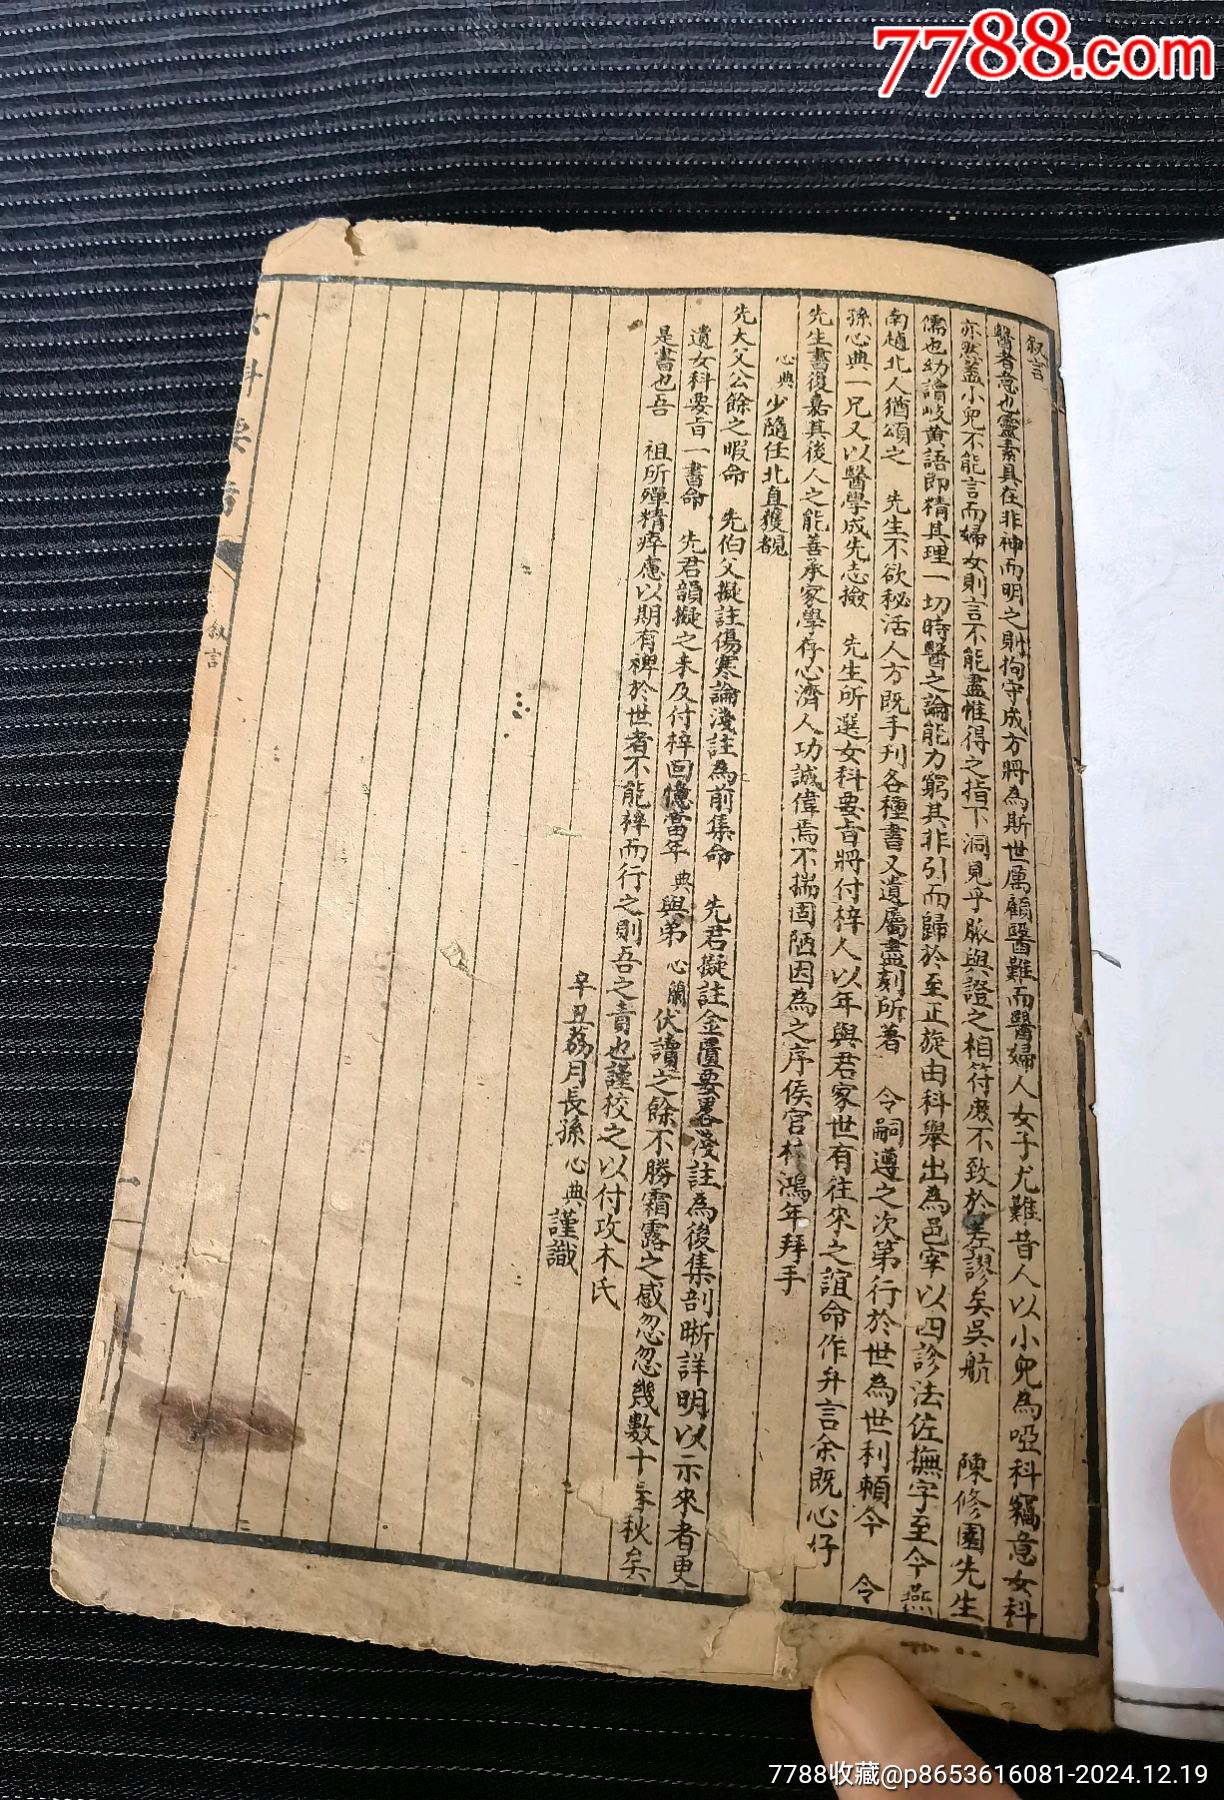 7788.com
叙言
醫者意也靈素具在非神而明之則拘守成方將為斯世厲顧醫難而醫婦人女子尤難昔人以小兒為啞科竊意女科
亦然蓋小兒不能言而婦女則言不能盡惟得之指下洞見乎脈與證之相符庶不致於差謬矣吳航 陳修園先生
儒也幼讀岐黃語即精其理一切時醫之論能力窮其非引而歸於至正旋由科舉出為邑宰以四診法佐撫字至今燕
南趙北人猶頌之 先生不欲秘活人方既手刊各種書又遺屬盡刻所著 令嗣遵之次第行於世為世利賴今 令
孫心典一兄又以醫學成先志撿 先生所選女科要旨將付梓人以年與君家世有往來之誼命作弁言余既心仔
先生書復嘉其後人之能善承家學存心濟人功誠偉焉不揣固陋因為之序侯官林鴻年拜手
心典少隨任北直獲覩
先大父公餘之暇命 先伯父擬註傷寒論淺註為前集命 先君擬註金匱要畧淺註為後集剖晰詳明以示來者更
遺女科要旨一書命 先君韻擬之未及付梓回憶當年典與弟心蘭伏讀之餘不勝霜露之感忽忽幾數十春秋矣
是書也吾 祖所殫精瘁慮以期有裨於世者不能梓而行之則吾之責也謹校之以付攻木氏
辛丑荔月長孫心典謹識
女科要旨
叙言
一
7788收藏@p8653616081-2024.12.19